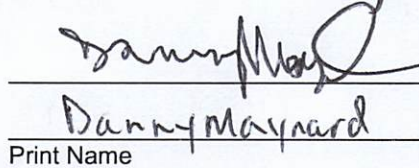 Danny May
Danny Maynard
Print Name